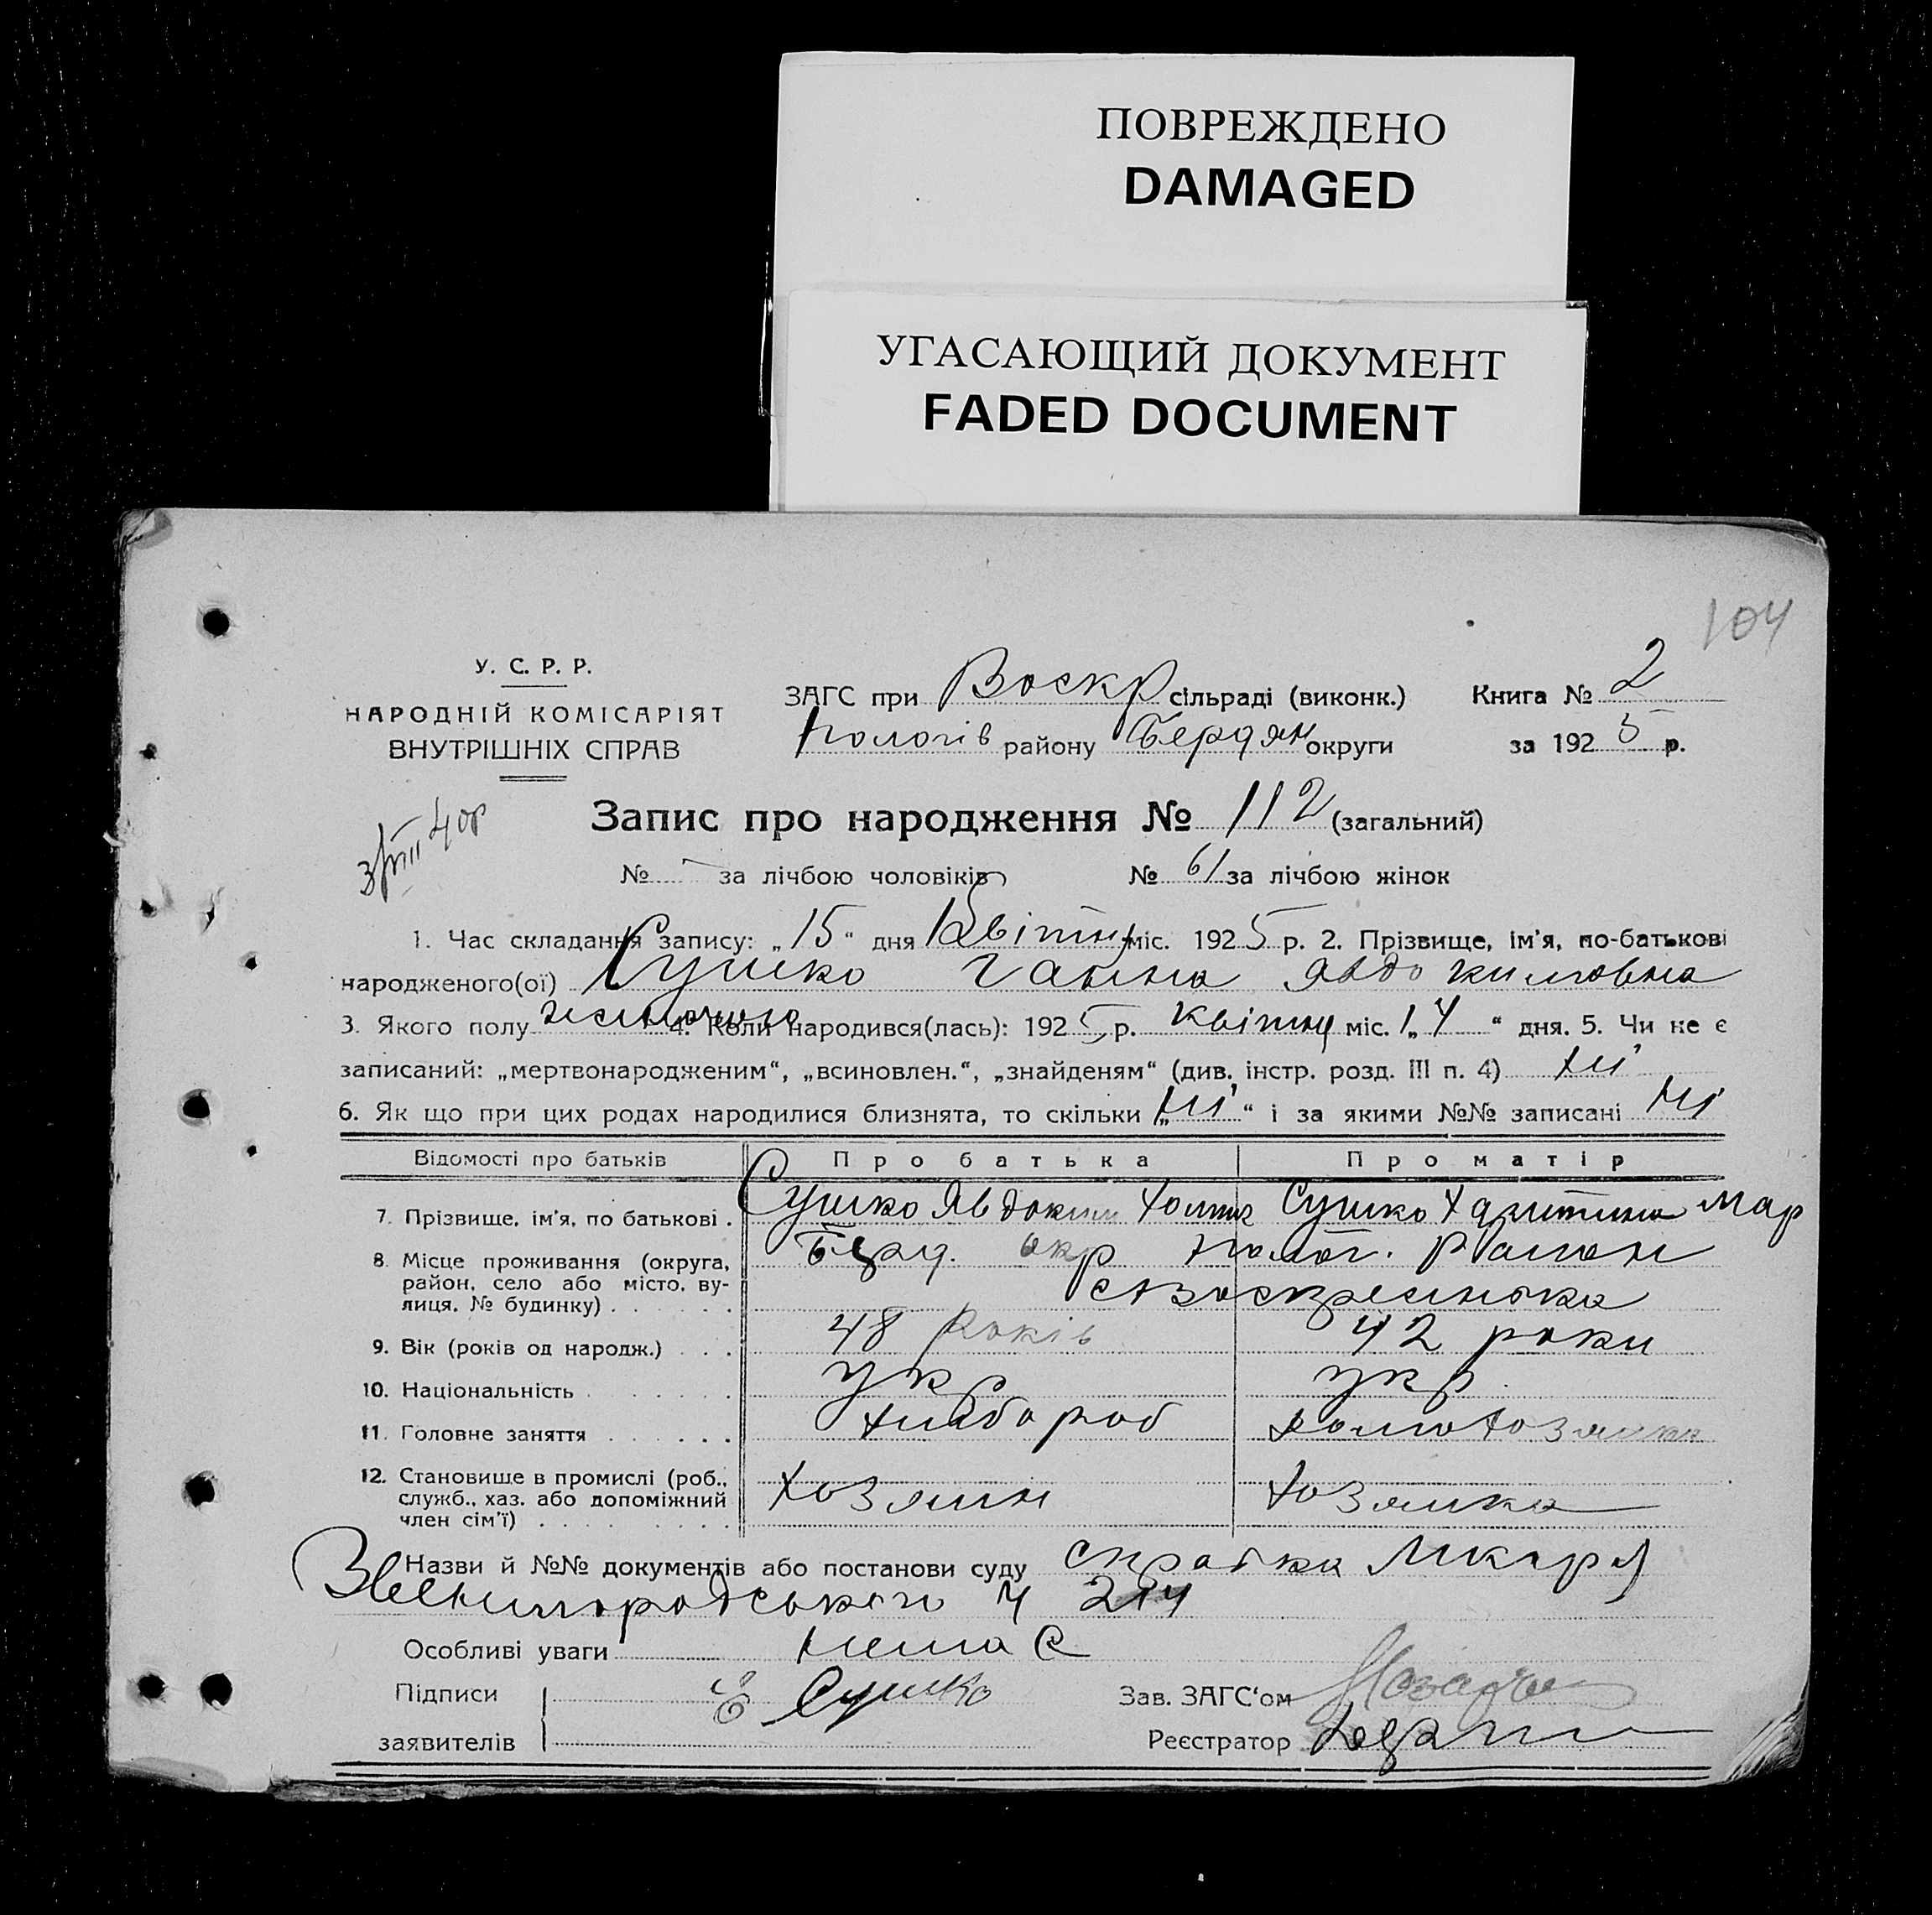 ПОВРЕЖДЕНО
DAMAGED
УГАСАЮЩИЙ ДОКУМЕНТ
FADED DOCUMENT
104
У. С. Р. Р.
НАРОДНІЙ КОМІСАРІЯТ
ВНУТРІШНІХ СПРАВ
ЗАГС при Воскр сільраді (виконк.) Книга № 2
Пологів району Бердян округи за 1925 р.
Запис про народження № 112 (загальний)
№ — за лічбою чоловіків № 61 за лічбою жінок
1. Час складання запису: „15“ дня Квітня міс. 1925 р. 2. Прізвище, ім'я, по-батькові
народженого(ої) Сушко Ганна Явдокимовна
3. Якого полу жіночого 4. Коли народився(лась): 1925 р. Квітня міс. „14“ дня. 5. Чи не є
записаний: „мертвонародженим“, „всиновлен.“, „знайденям“ (див. інстр. розд. III п. 4) ні
6. Як що при цих родах народилися близнята, то скільки „ні“ і за якими №№ записані ні
Відомості про батьків Про батька Про матір
7. Прізвище, ім'я, по батькові . Сушко Явдоким Сушко Харитина Мар
8. Місце проживання (округа, район, село або місто, вулиця, № будинку) Берд. окр Полог. Район
с Воскресенька
9. Вік (років од народж.) . . . 48 Років 42 роки
10. Національність укр укр.
11. Головне заняття хлібороб домохозяйка
12. Становище в промислі (роб., служб., хаз. або допоміжний член сім'ї) хозяин хозяйка
Назви й №№ документів або постанови суду справка лікаря
Звенигородського Ч 214
Особливі уваги нема є
Підписи Є Сушко Зав. ЗАГС'ом
заявителів Реєстратор